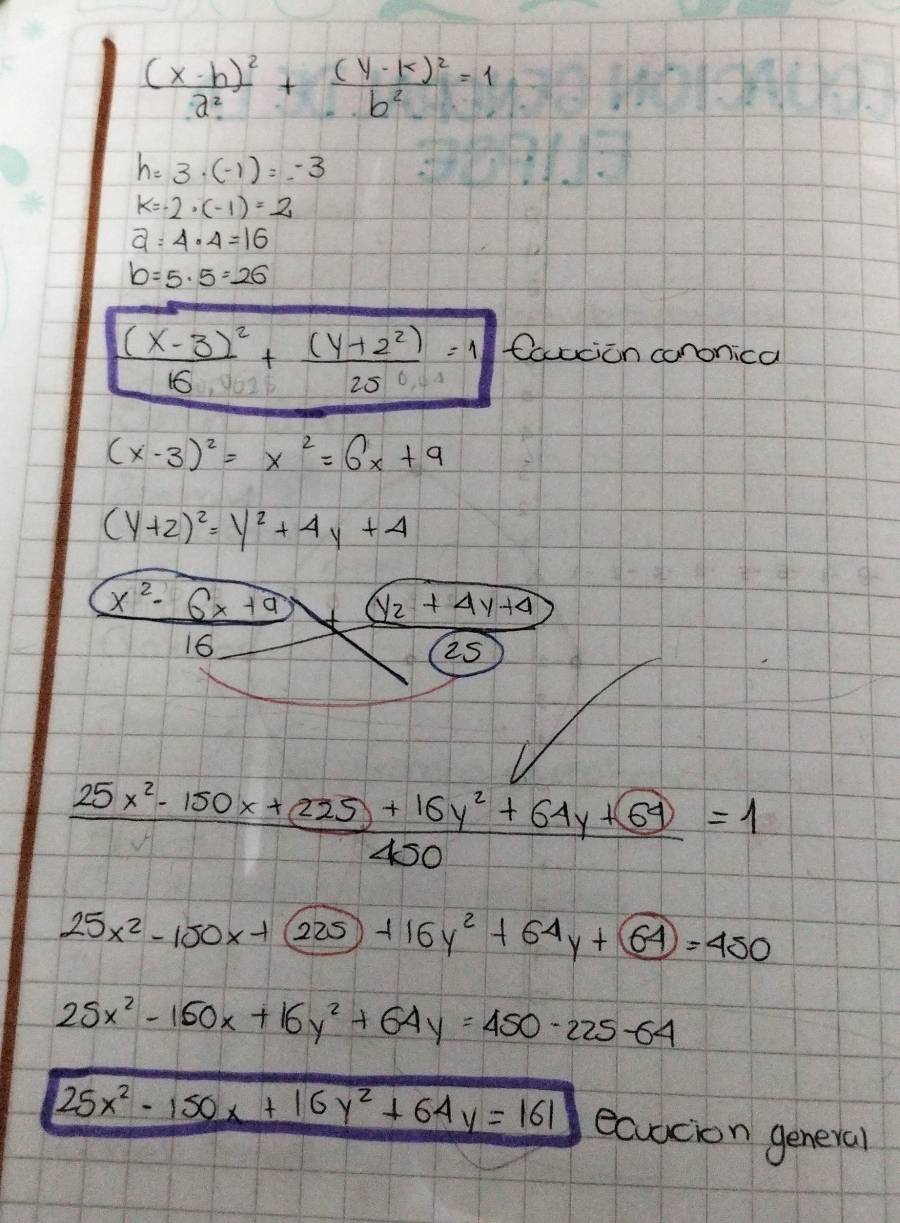 (x-h)²/a² + (y-k)²/b² = 1
h= 3 · (-1) = -3
k=-2 · (-1) = 2
a = 4 · 4 = 16
b = 5 · 5 = 26
(x-3)²/16 + (y+2²)/25 = 1 Ecuación canonica
(x-3)² = x² = 6x + 9
(y+2)² = y² + 4y + 4
x² - 6x + 9/16 + y2 + 4y + 4/25
25x² - 150x + 225 + 16y² + 64y + 64/450 = 1
25x² - 150x + 225 + 16y² + 64y + 64 = 450
25x² - 150x + 16y² + 64y = 450 - 225 - 64
25x² - 150x + 16y² + 64y = 161 ecuacion general